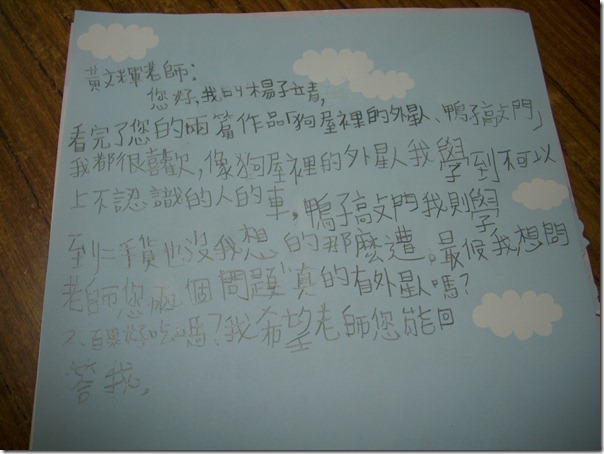 黃文輝老師:
您好,我叫楊子青,
看完了您的兩篇作品「狗屋裡的外星人、鴨子敲門」
我都很喜歡,像狗屋裡的外星人我學到不可以
上不認識的人的車。鴨子敲門我則學
到二手貨也沒我想的那麼遭。最候我想問
老師您兩個問題1.真的有外星人嗎?
2.百果好吃嗎?我希望老師您能回
答我,